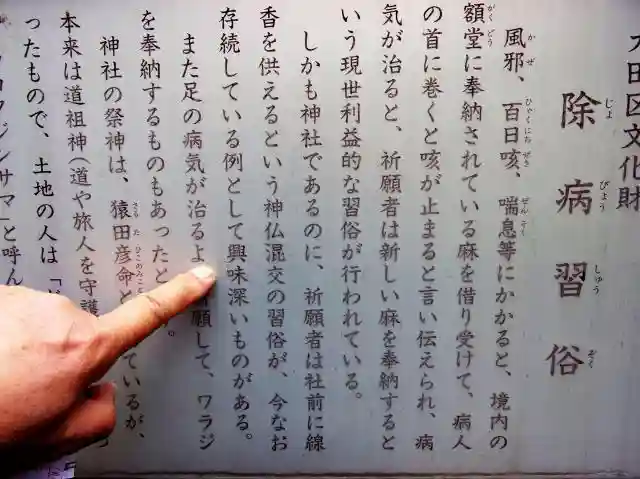 大田区文化財
除病習俗
じょ びょう しゅう ぞく
風邪、百日咳、喘息等にかかると、境内の
かぜ ひゃくにちぜき ぜんそく
額堂に奉納されている麻を借り受けて、病人
がくどう
の首に巻くと咳が止まると言い伝えられ、病
気が治ると、祈願者は新しい麻を奉納すると
いう現世利益的な習俗が行われている。
しかも神社であるのに、祈願者は社前に線
香を供えるという神仏混交の習俗が、今なお
存続している例として興味深いものがある。
また足の病気が治るよ 願して、ワラジ
を奉納するものもあったと 。
神社の祭神は、猿田彦命と ているが、
さるたひこのみこと
本来は道祖神(道や旅人を守護
ったもので、土地の人は「
コウジンサマ」と呼ん